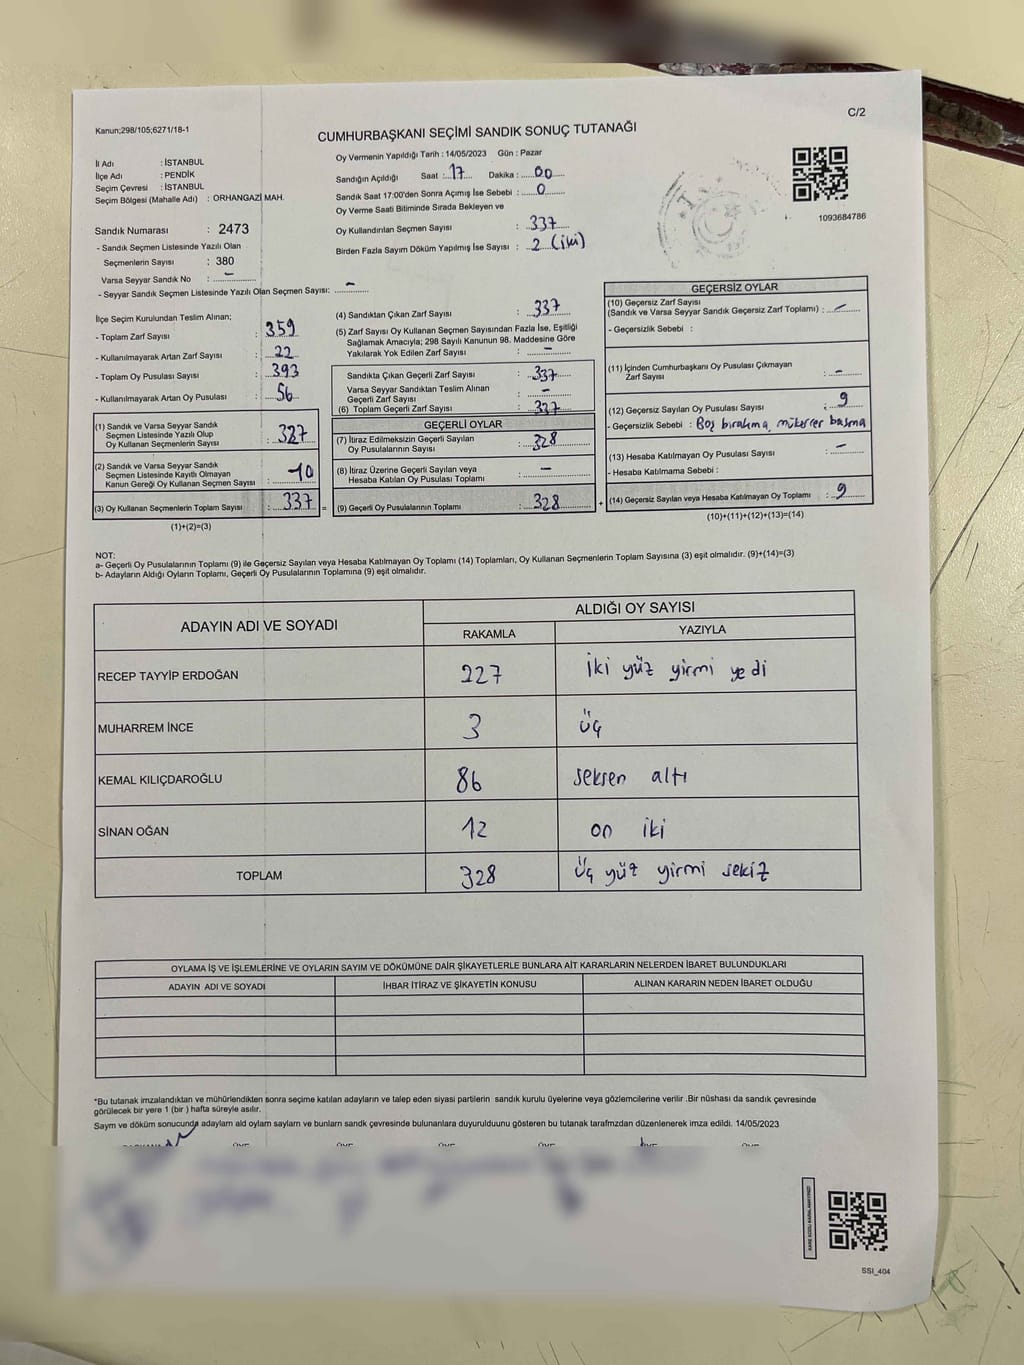 C/2
Kanun;298/105;6271/18-1
CUMHURBAŞKANI SEÇİMİ SANDIK SONUÇ TUTANAĞI
İl Adı : İSTANBUL
İlçe Adı : PENDİK
Seçim Çevresi : İSTANBUL
Seçim Bölgesi (Mahalle Adı) : ORHANGAZİ MAH.
Sandık Numarası : 2473
- Sandık Seçmen Listesinde Yazılı Olan
Seçmenlerin Sayısı : 380
Varsa Seyyar Sandık No : –
- Seyyar Sandık Seçmen Listesinde Yazılı Olan Seçmen Sayısı: –
Oy Vermenin Yapıldığı Tarih : 14/05/2023 Gün : Pazar
Sandığın Açıldığı Saat : 17 Dakika : 00
Sandık Saat 17:00'den Sonra Açımış İse Sebebi : 0
Oy Verme Saati Bitiminde Sırada Bekleyen ve
Oy Kullandırılan Seçmen Sayısı : 337
Birden Fazla Sayım Döküm Yapılmış İse Sayısı : 2 (iki)
1093684786
İlçe Seçim Kurulundan Teslim Alınan;
- Toplam Zarf Sayısı : 359
- Kullanılmayarak Artan Zarf Sayısı : 22
- Toplam Oy Pusulası Sayısı : 393
- Kullanılmayarak Artan Oy Pusulası : 56
(1) Sandık ve Varsa Seyyar Sandık
Seçmen Listesinde Yazılı Olup
Oy Kullanan Seçmenlerin Sayısı : 327
(2) Sandık ve Varsa Seyyar Sandık
Seçmen Listesinde Kayıtlı Olmayan
Kanun Gereği Oy Kullanan Seçmen Sayısı : 10
(3) Oy Kullanan Seçmenlerin Toplam Sayısı : 337 =
(1)+(2)=(3)
(4) Sandıktan Çıkan Zarf Sayısı : 337
(5) Zarf Sayısı Oy Kullanan Seçmen Sayısından Fazla İse, Eşitliği
Sağlamak Amacıyla; 298 Sayılı Kanunun 98. Maddesine Göre
Yakılarak Yok Edilen Zarf Sayısı : –
Sandıkta Çıkan Geçerli Zarf Sayısı : 337
Varsa Seyyar Sandıktan Teslim Alınan
Geçerli Zarf Sayısı : –
(6) Toplam Geçerli Zarf Sayısı : 337
GEÇERLİ OYLAR
(7) İtiraz Edilmeksizin Geçerli Sayılan
Oy Pusulalarının Sayısı : 328
(8) İtiraz Üzerine Geçerli Sayılan veya
Hesaba Katılan Oy Pusulası Toplamı : –
(9) Geçerli Oy Pusulalarının Toplamı : 328 +
GEÇERSİZ OYLAR
(10) Geçersiz Zarf Sayısı
(Sandık ve Varsa Seyyar Sandık Geçersiz Zarf Toplamı) : –
- Geçersizlik Sebebi :
(11) İçinden Cumhurbaşkanı Oy Pusulası Çıkmayan
Zarf Sayısı : –
(12) Geçersiz Sayılan Oy Pusulası Sayısı : 9
- Geçersizlik Sebebi : Boş bırakma, mükerrer basma
(13) Hesaba Katılmayan Oy Pusulası Sayısı : –
- Hesaba Katılmama Sebebi :
(14) Geçersiz Sayılan veya Hesaba Katılmayan Oy Toplamı : 9
(10)+(11)+(12)+(13)=(14)
NOT:
a- Geçerli Oy Pusulalarının Toplamı (9) ile Geçersiz Sayılan veya Hesaba Katılmayan Oy Toplamı (14) Toplamları, Oy Kullanan Seçmenlerin Toplam Sayısına (3) eşit olmalıdır. (9)+(14)=(3)
b- Adayların Aldığı Oyların Toplamı, Geçerli Oy Pusulalarının Toplamına (9) eşit olmalıdır.
ADAYIN ADI VE SOYADI ALDIĞI OY SAYISI
RAKAMLA YAZIYLA
RECEP TAYYİP ERDOĞAN 227 iki yüz yirmi yedi
MUHARREM İNCE 3 üç
KEMAL KILIÇDAROĞLU 86 seksen altı
SİNAN OĞAN 12 on iki
TOPLAM 328 üç yüz yirmi sekiz
OYLAMA İŞ VE İŞLEMLERİNE VE OYLARIN SAYIM VE DÖKÜMÜNE DAİR ŞİKAYETLERLE BUNLARA AİT KARARLARIN NELERDEN İBARET BULUNDUKLARI
ADAYIN ADI VE SOYADI İHBAR İTİRAZ VE ŞİKAYETİN KONUSU ALINAN KARARIN NEDEN İBARET OLDUĞU
*Bu tutanak imzalandıktan ve mühürlendikten sonra seçime katılan adayların ve talep eden siyasi partilerin sandık kurulu üyelerine veya gözlemcilerine verilir .Bir nüshası da sandık çevresinde
görülecek bir yere 1 (bir ) hafta süreyle asılır.
Sayım ve döküm sonucunda adayların ald oyların sayların ve bunların sandk çevresinde bulunanlara duyurulduunu gösteren bu tutanak tarafmzdan düzenlenerek imza edildi. 14/05/2023
SSI_404